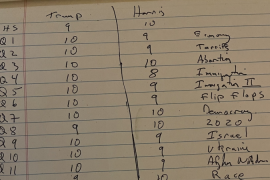 Trump Harris
HS 9 10
Q1 10 9
Q2 10 9 Tariffs
Q3 10 10 Abortion
Q4 10 8 Immigration
Q5 10 9 Immigration II
Q6 10 9 Flip Flops
Q7 10 10 Democracy
Q8 9 10 2020
Q9 10 9 Israel
Q10 10 9 Ukraine
Q11 10 9
9 10 Race